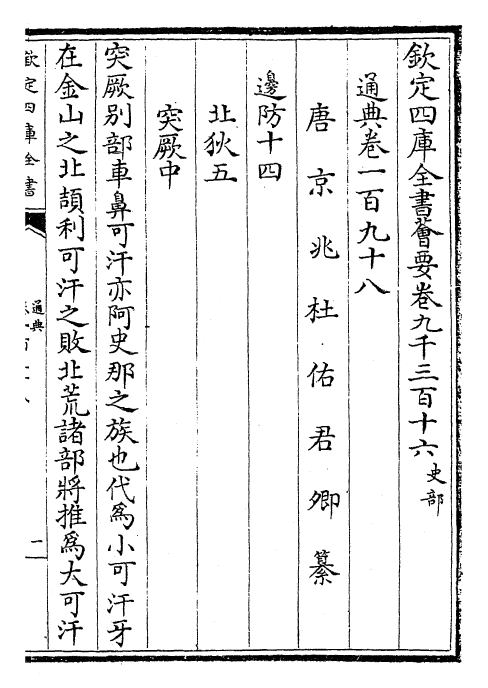 欽定四庫全書薈要卷九千三百十六史部
通典卷一百九十八
唐京兆杜佑君卿纂
邊防十四
北狄五
突厥中
突厥别部車鼻可汗亦阿史那之族也代為小可汗牙
在金山之北頡利可汗之敗北荒諸部將推為大可汗
欽定四庫全書
通典